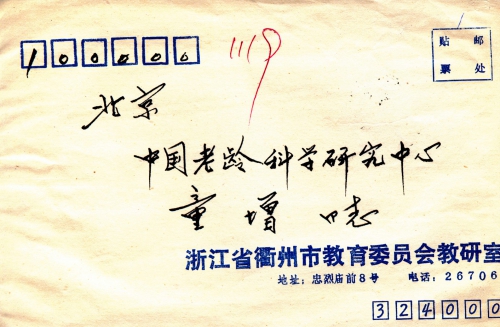 100000
1119
贴邮
票处
北京
中国老龄科学研究中心
童增 同志
浙江省衢州市教育委员会教研室
地址：忠烈庙前8号 电话：26706
324000